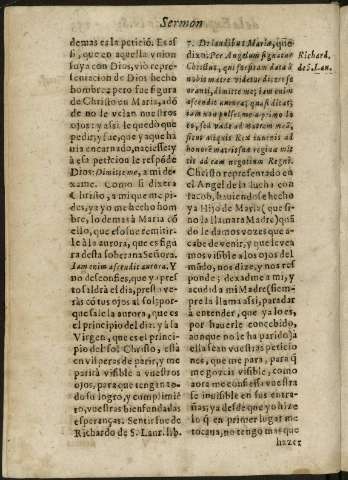 Sermon
demas ea la petició. Es así
si, que en aquella vnion
suya con Dios, vió repre-
sentacion de Dios hecho
hombre; pero fue figura
de Christo en Maria, adó
de no le veían nuestros
ojos: y assi le quedò que
pedir, y fue, que y a que ha
via encarnado, naciesse; y
à esta peticion le respóde
Dios: Dimitte me, a mi de-
xame. Como si dixera
Christo, a mi que me pi-
des, ya yo me è hecho hom
bre, lo demas à Maria có
ello, que esso fue remitir-
le à la aurora, que es figu
ra desta soberana Señora.
Iam enim ascendit aurora. Y
no desconfies, que ya pres
to saldrà el dia, presto ve-
ràs có tus ojos al sol; por
que sale la aurora, que es
el principio del dia: y a la
Virgen, que es el princi-
pio del sol Christo, està
en visperas de parir, y me
parirà visible a vuestros
ojos, para que tengan to-
do su logro, y cumplimié
to, vuestras bienfundadas
esperanças. Sentir fue de
Richardo de S. Laur. lib.
7. De laudibus Mariæ, que
dixo: Per Angelum signatur
Christus, qui scriptam data à
nobis matre videtur dicere fa
oranti, dimitte me; iam enim
ascendit aurora; quasi dicat;
iam non posses me a primo lo
co, sed vade ad matrem meã,
sicut aliquis Rex iunenis ad
honorē matris suæ regina mit
tit ad eam negotium Regni.
Christo representado en
el Angel de la lucha con
Iacob, haviendose hecho
ya Hijo de Maria (que si-
no la llamara Madre) quã
do le damos vozes que a-
cabe de venir, y que le vea
mos visible a los ojos del
mundo, nos dize, y nos res
ponde: dexadme a mi, y
acudid a mi Madre (siem-
pre la llama assi, para dar
à entender, que ya lo es,
por haverle concebido,
aunque no le ha parido) a
ella sean vuestras peticio
nes, que me para, para q̃
me gozeis visible, como
me confiessa vuestra
fe invisible en sus entra-
ñas; ya desde que yo hize
lo q̃ en primer lugar me
tocaua, no tengo mas que
hazer
Richard.
de S. Lau.